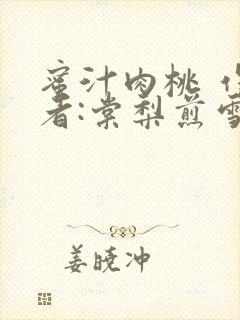 蜜汁肉桃 作
者:棠梨煎雪
姜晓冲